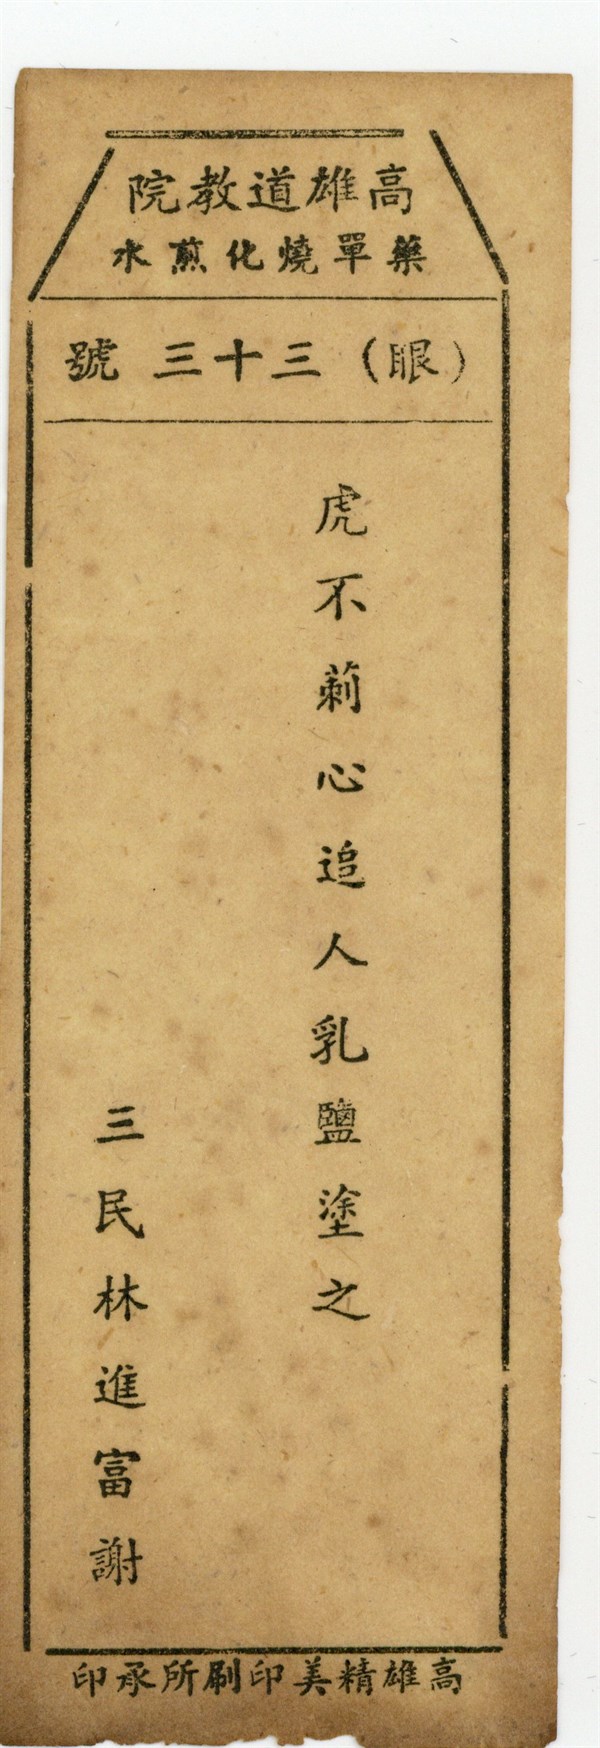 高雄道教院
藥單燒化煎水
（眼）三十三號
虎不莿心追人乳鹽塗之
三民林進富謝
高雄精美印刷所承印